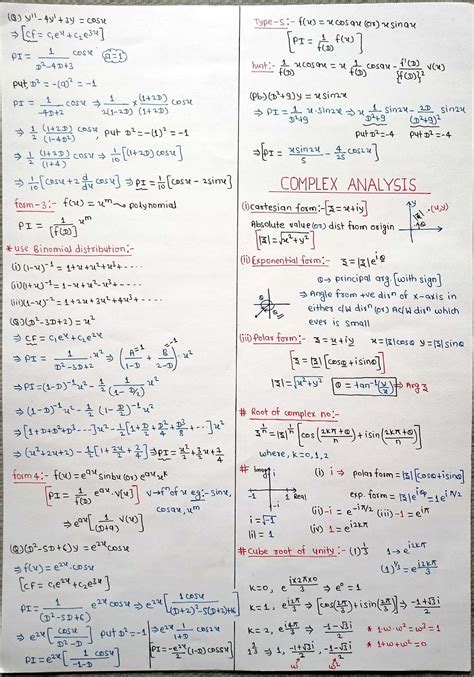 (Q) y'' - 4y' + 3y = cosx
⇒ [CF = c₁eˣ + c₂e³ˣ]
PI = 1/(D²-4D+3) cosx (a=1)
put, D² = -(a)² = -1
PI = 1/(-4D+2) cosx ⇒ 1/2(1-2D) × (1+2D)/(1+2D) cosx
⇒ 1/2 (1+2D)/(1-4D²) cosx, put D² = -(1)² = -1
⇒ 1/2 (1+2D)/(1+4) cosx ⇒ 1/10 [(1+2D) cosx]
⇒ 1/10 [cosx + 2 d/dx cosx] ⇒ PI = 1/10 [cosx - 2sinx]
form-3:- f(x) = xᵐ → polynomial
PI = 1/[f(D)] xᵐ
* use Binomial distribution:-
(i) (1-x)⁻¹ = 1+x+x²+x³+ ----
(ii) (1+x)⁻¹ = 1-x+x²-x³+ ----
(iii) (1-x)⁻² = 1+2x+3x²+4x³+ ----
(Q) (D²-3D+2) = x²
⇒ CF = c₁eˣ + c₂e²ˣ
⇒ PI = 1/(D²-3D+2) x² ⇒ (A/(1-D) + B/(2-D)) x²
⇒ [1+D+D²+D³---]x² - 1/2[1+D/2+D²/4+D³/8+---]x²
form 4:- f(x) = eᵃˣ sinbx (or) eᵃˣ xᵏ
[PI = 1/f(D) eᵃˣ·V(x)] V→fⁿ of x eg:- sinx, cosax, xᵐ
⇒ eᵃˣ [1/f(D+a) V(x)]
(Q) (D²-5D+6)y = e²ˣ cosx
⇒ f(x) = e²ˣ·cosx
[CF = c₁e²ˣ + c₂e³ˣ]
PI = 1/(D²-5D+6) e²ˣ cosx ⇒ e²ˣ [1 cosx/((D+2)²-5(D+2)+6)]
⇒ e²ˣ [cosx/(D²-D)] put D² = -1
PI = e²ˣ [1 cosx/(-1-D)]
PI = -e²ˣ/2 (1-D) cosx
Type-5:- f(x) = xcosax (or) xsinax
[PI = 1/f(D) f(x)]
(Pb) (D²+9)y = xsin2x
⇒ PI = 1/(D²+9) x·sin2x ⇒ x 1/(D²+9) sin2x - 2D/(D²+9)² sin2x
put D²=-4 put D²=-4
⇒ [PI = xsin2x/5 - 4/25 cos2x]
COMPLEX ANALYSIS
(i) Cartesian form:- [z = x+iy]
(x,y)
Absolute value (or) dist from origin
[|z| = √x²+y²]
(ii) Exponential form:- z = |z|e^iθ
θ → principal arg. [with sign]
⇒ Angle from +ve dirⁿ of x-axis in
either c/w dirⁿ (or) Ac/w dirⁿ which
ever is small
(iii) Polar form:- z = x+iy x = |z|cosθ y = |z|sinθ
z = |z| [cosθ+isinθ]
|z| = √x²+y² θ = tan⁻¹(y/x) → Arg z
# Root of complex no:-
z^1/n = |z|^1/n [cos(2kπ+θ/n) + isin(2kπ+θ/n)]
where, k=0,1,2
# Imag i
-1 1 Real
-i
i = √-1
(i) i → polar form = |z| [cosθ+isinθ]
(ii) -i = e^-iπ/2 (iii) -1 = e^iπ
(iv) 1 = e^i2kπ
# Cube root of unity:- (1)^1/3 1 → e^i2kπ
(1)^1/3 = e^i2kπ/3
k=0, e^i2π×0/3 ⇒ e⁰ = 1
k=1, e^i2π/3 ⇒ [cos(2π/3)+isin(2π/3)] ⇒ -1+√3i/2
k=2, e^i4π/3 ⇒ -1-√3i/2 * 1·w·w² = w³ = 1
1^1/3 ⇒ 1, -1+√3i/2, -1-√3i/2 * 1+w+w² = 0
w w²